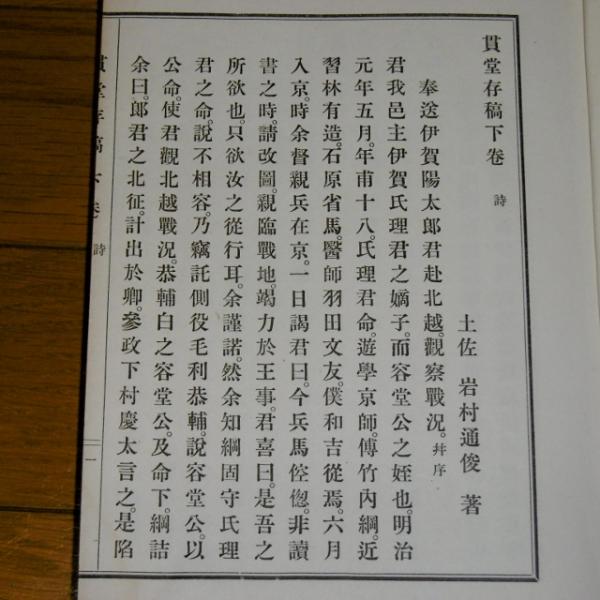 貫堂存稿下卷 詩
土佐 岩村通俊 著
奉送伊賀陽太郎君赴北越。觀察戰況。幷序
君我邑主伊賀氏理君之嫡子。而容堂公之姪也。明治
元年五月。年甫十八。氏理君命。遊學京師。傅竹內綱。近
習林有造。石原省馬。醫師羽田文友。僕和吉從焉。六月
入京。時余督親兵在京。一日謁君曰。今兵馬倥偬。非讀
書之時。請改圖。親臨戰地。竭力於王事。君喜曰。是吾之
所欲也。只欲汝之從行耳。余謹諾。然余知綱固守氏理
君之命。說不相容。乃竊託側役毛利恭輔。說容堂公。以
公命。使君觀北越戰況。恭輔白之容堂公。及命下。綱詰
余曰。郞君之北征。計出於卿。參政下村慶太言之。是陷
貫堂存稿下卷 詩
一